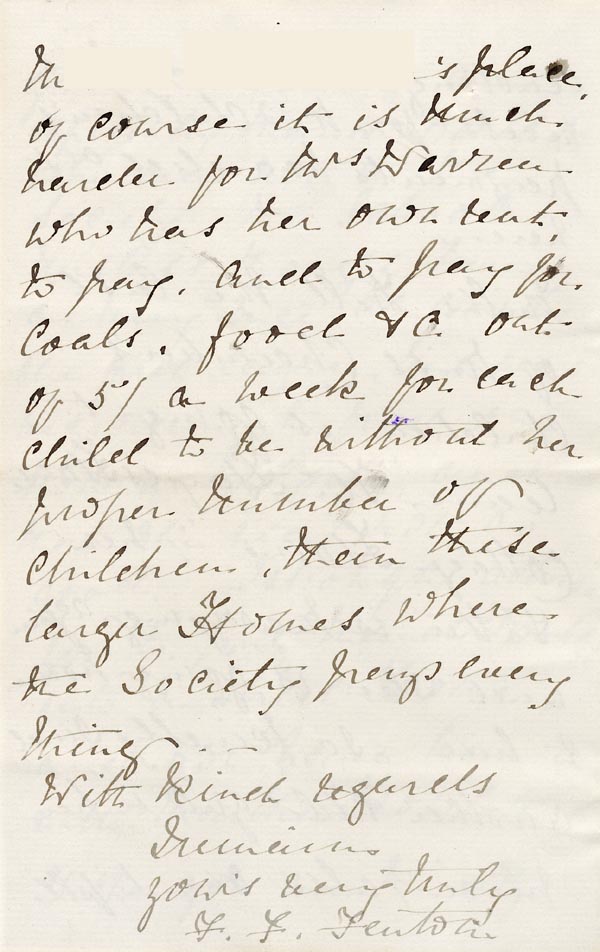 in 's place.
of course it is much
harder for Mrs Warren
who has her own rent,
to pay, and to pay for
coals, food &c out
of 5/ a week for each
child to be without her
proper number of
children, than these
larger Homes where
the Society pays every
thing. —
With kind regards
I remain
yours very truly
F. F. Fenton